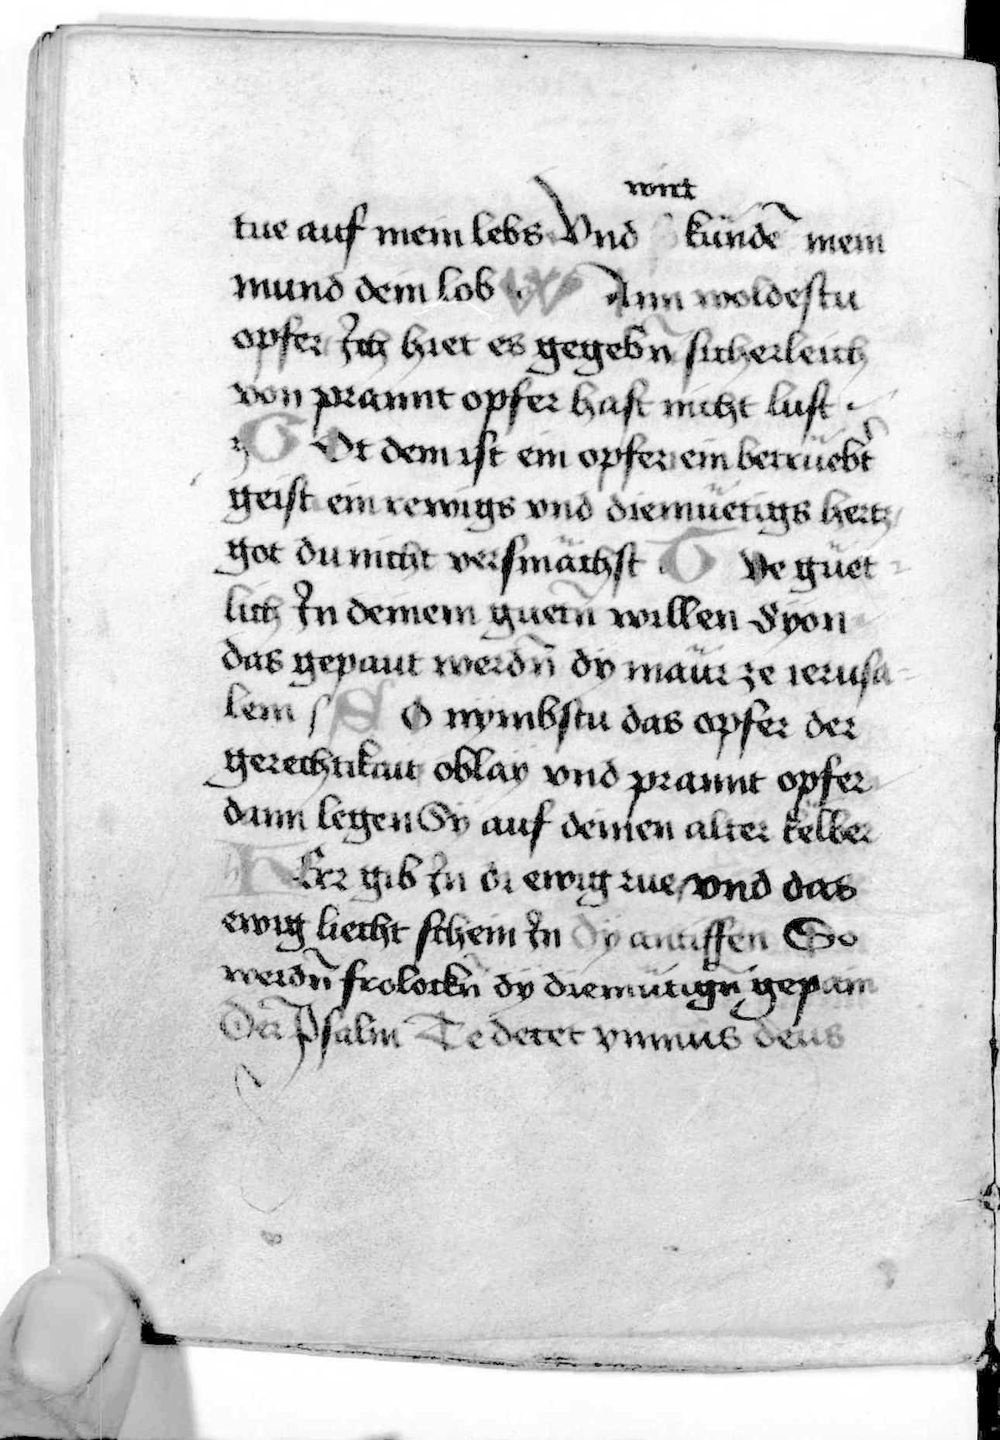 wirt
tue auf mein lebs Vnd kündē mein
mund dein lob . W Ann woldestu
opfer Ich hiet es gegebn̄ sicherleich
von prannt opfer hast nicht lust .
G Ot dem ist ein opfer ein betrüebt
geist ein rewigs vnd diemüetigs hertz
got du nicht versmächst . T Ve güet
lich In deinem guetn̄ willen Syon
das gepaut werdn̄ dy maür ze ierusa-
lem S O nymbstu das opfer der
gerechtikait oblay vnd prannt opfer
dann legen Sy auf deinen alter kelber
H Err gib In di ewig rue vnd das
ewig liecht schein In dy antiffen So
werdn̄ frolockn̄ dy diemütign̄ gepain
Der Psalm Te decet ymnus deus